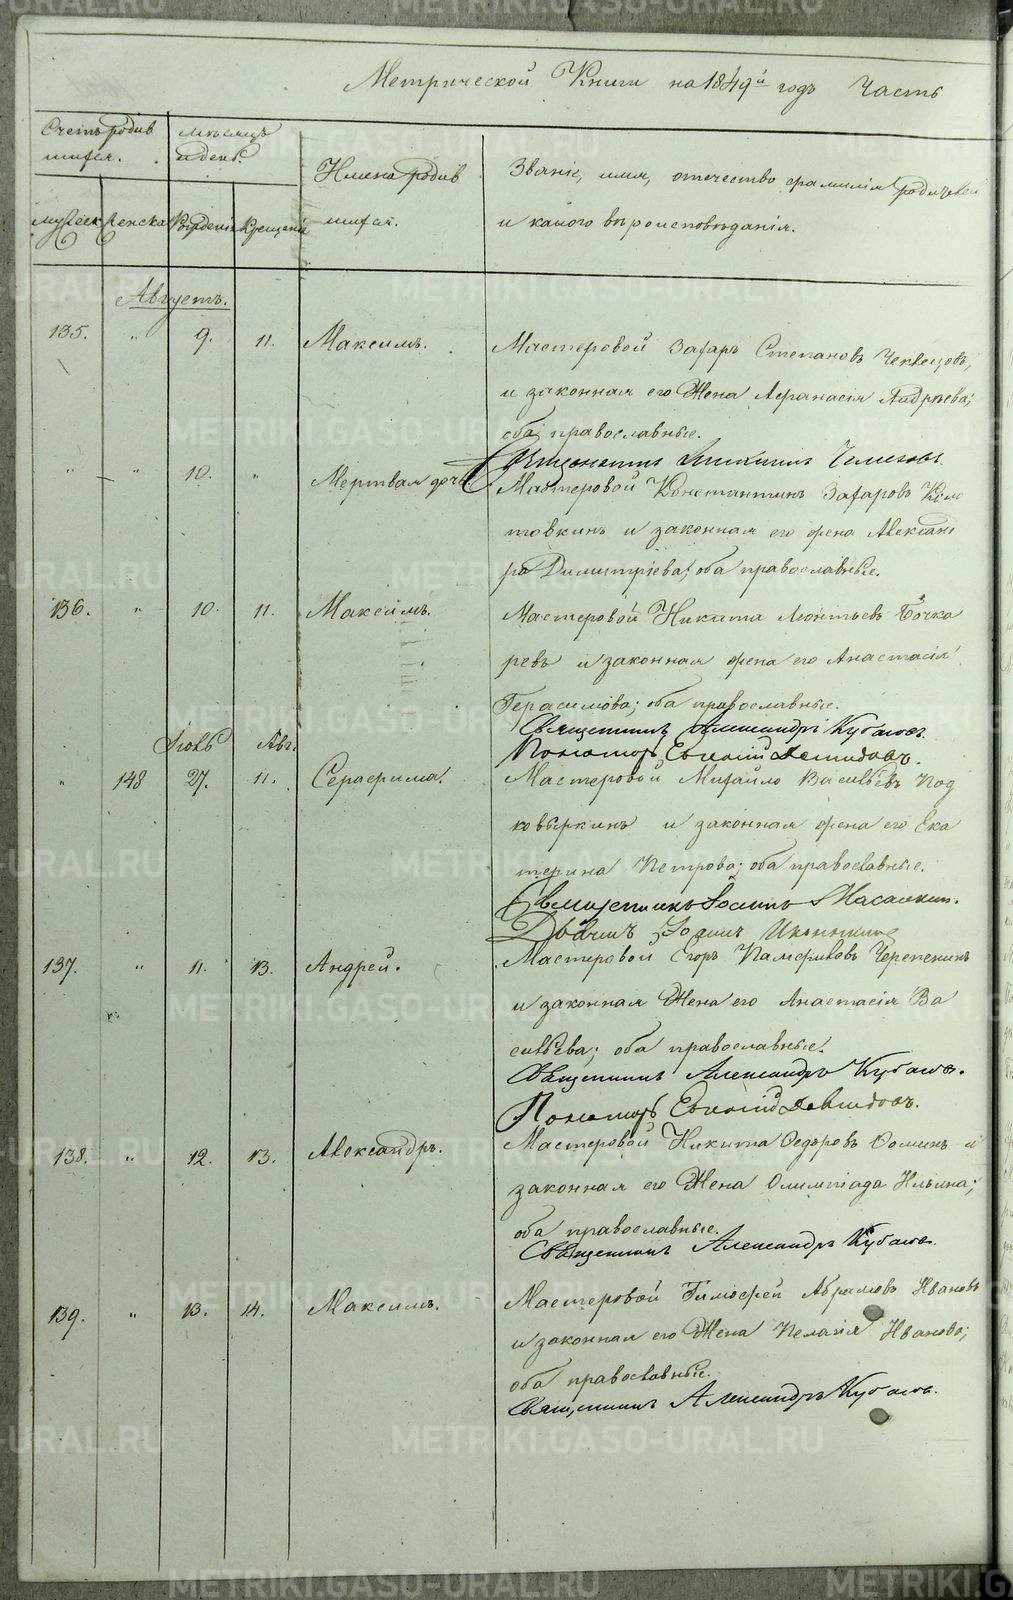 METRIKI.GASO-URAL.RU
Метрической Книги на 1849й годъ Часть
Счетъ родив
шихся.
мѣсяцъ
и день.
Имена родив
шихся.
Званіе, имя, отчество фамилія родителей
и какого вѣроисповѣданія.
мужеск женска Рожденія Крещенія
Августъ.
135. " 9. 11. Максимъ. Мастеровой Захаръ Степановъ
и законная его Жена Афанасія Андреева;
оба православные.
" " 10. " Мертвая дочь Мастеровой Константинъ Захаровъ
товкинъ и законная его жена Александ
ра Димитріева; оба православные.
136. " 10. 11. Максимъ. Мастеровой Никита Леонтьевъ Бочка
ревъ и законная жена его Анастасія
Герасимова; оба православные.
Священникъ Александръ Кубасовъ.
Пономарь Евгеній Демидовъ.
Іюль Авг.
" 148 27. 11. Серафима. Мастеровой Михайло Васильевъ Под
ковыркинъ и законная жена его Ека
терина Петрова; оба православные.
Священникъ Іоаннъ
Дьячекъ Іоаннъ
137. " 11. 13. Андрей. Мастеровой Егоръ Памфиловъ Черепенинъ
и законная Жена его Анастасія Ва
сильева; оба православные.
Священникъ Александръ Кубасовъ.
Пономарь Евгеній Демидовъ.
138. " 12. 13. Александръ. Мастеровой Никита Ѳедоровъ Ѳоминъ и
законная его Жена Олимпіада Ильина;
оба православные.
Священникъ Александръ Кубасовъ.
139. " 13. 14. Максимъ. Мастеровой Тимофей Абрамовъ Ивановъ
и законная его Жена Пелагія Иванова;
оба православные.
Священникъ Александръ Кубасовъ.